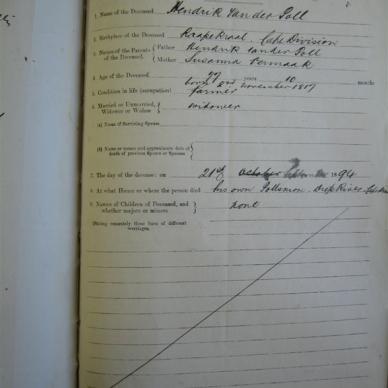 1. Name of the Deceased Hendrik van der Poll
2. Birthplace of the Deceased Kraaipekraal, Cape Division
3. Names of the Parents of the Deceased. { Father Hendrik van der Poll
Mother Susanna Vermaak
4. Age of the Deceased 77 years 10 months
born 2nd November 1817
5. Condition in life (occupation) farmer
6. Married or Unmarried, Widower or Widow { widower
(a) Name of Surviving Spouse
(b) Name or names and approximate date of death of previous Spouse or Spouses }
7. The day of the decease: on 21st October 1894
8. At what House or where the person died his own Deep River
9. Names of Children of Deceased, and whether majors or minors } none
(Stating separately those born of different marriages.